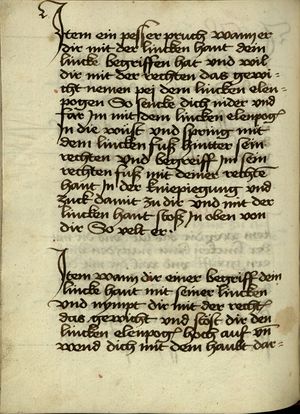 Item ein pesser pruch wann er
dir mit der lincken hant dein
lincke begriffen hat und wil
dir mit der rechten das gewi-
cht nemen pej dem lincken elen-
pogen So sencke dich nider und
far im mit dem lincken elenpog
In die wüst und spring mit
dem lincken fuß hintter sein
rechten und begreiff Im sein
rechten fuß mit deiner rechte
hant In der kniepiegung und
zuck damit zu dir und mit der
lincken hant stoß In oben von
dir So velt er
Item wann dir einer begriff dein
lincke hant mit seiner lincken
und nympt dir mit der recht
das gewicht und stost dir den
lincken elenpog hoch auf vn
wend dich mit dem haubt dar-